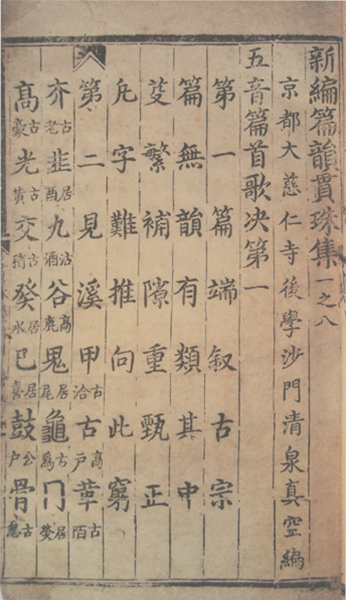 新編篇韻貫珠集 一之八
京都大慈仁寺後學沙門清泉真空編
五音篇首歌決第一
第一篇端叙古宗
篇無韻有類其中
芟繁補隙重甄正
凣字難推向此窮
第二見溪甲古洽古户高革古百
夰古老韭居酉九沾酒谷高鹿鬼居尾龜古為冂居癸
高古豪光古黄交古稍癸居水巳居喜鼓公户骨古忽